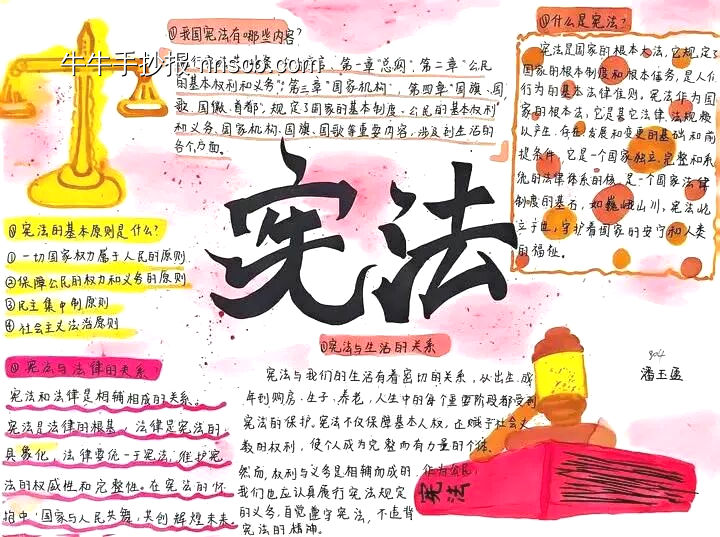 我国宪法有哪些内容?
牛牛手抄报 nnscb.com
第一章“总纲”第二章“公民
的基本权利和义务”第三章“国家机构”,第四章“国旗、国
歌、国徽、首都”,规定了国家的基本制度、公民的基本权利
和义务、国家机构、国旗、国歌等重要内容,涉及到生活的
各个方面。
①什么是宪法?
宪法是国家的根本大法,它规定了
国家的根本制度和根本任务,是人们
行为的基本法律准则。宪法作为国
家的根本法,它是其它法律、法规赖
以产生、存在、发展和变更的基础和前
提条件,它是一个国家独立、完整和系
统的法律体系的核,是一个国家法律
制度的基石,如巍峨山川,宪法屹
立于世,守护着国家的安宁和人类
的福祉。
宪法
宪法的基本原则是什么?
①一切国家权力属于人民的原则
②保障公民的权力和义务的原则
③民主集中制原则
④社会主义法治原则
宪法与法律的关系?
宪法和法律是相辅相成的关系。
宪法是法律的根基,法律是宪法的
具象化,法律要统一于宪法,维护宪
法的权威性和完整性。在宪法的怀
抱中,国家与人民共舞,共创辉煌未来。
宪法与生活的关系
宪法与我们的生活有着密切的关系,从出生、成
年到购房、生子、养老,人生中的每个重要阶段都受到
宪法的保护。宪法不仅保障基本人权,还赋予社会文
教的权利,使个人成为完整而有力量的个体。
然而,权利与义务是相辅而成的,作为公民,
我们也应认真履行宪法规定
的义务,自觉遵守宪法,不违背
宪法的精神。
904
潘玉
宪法